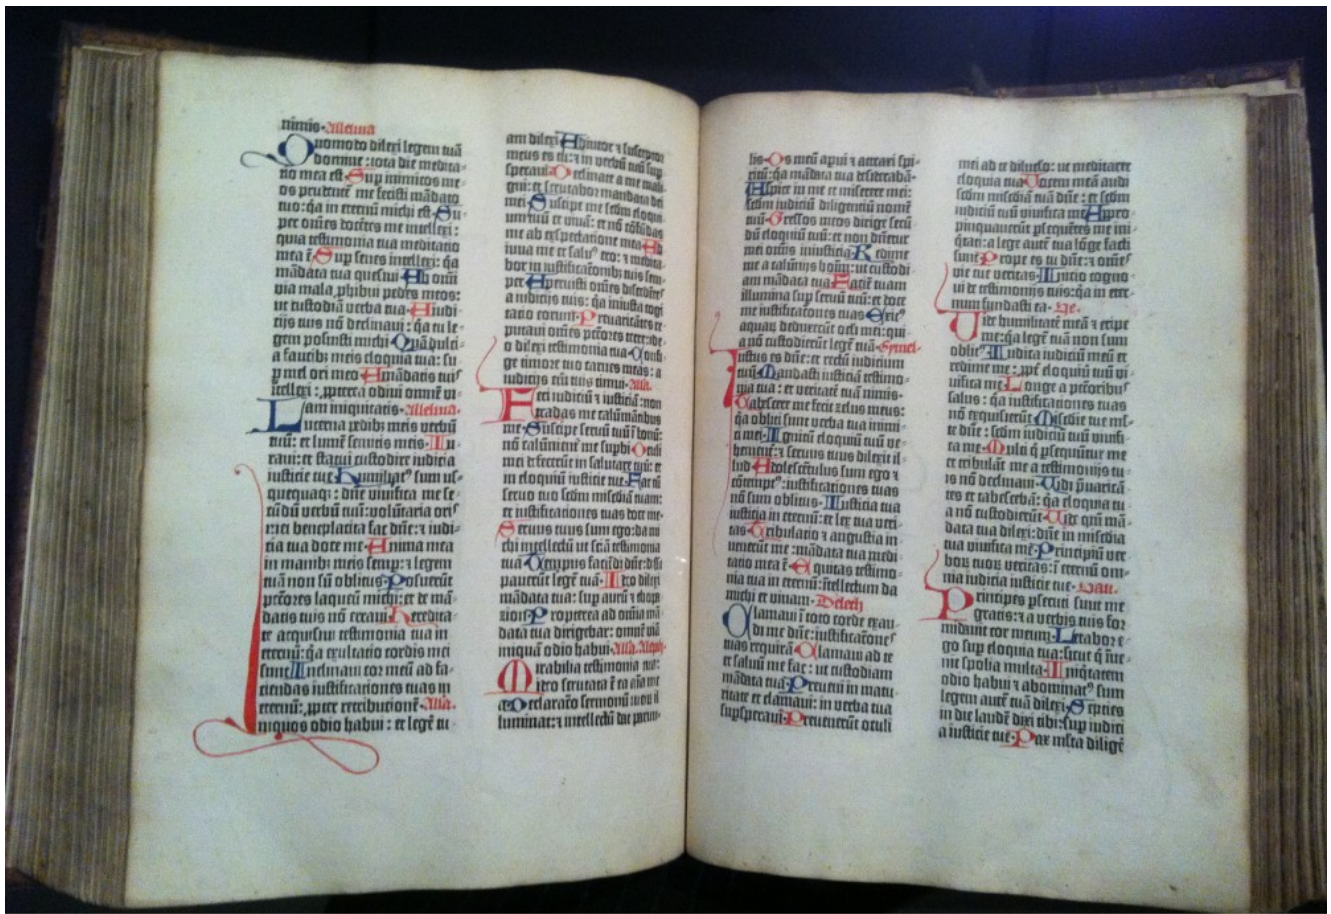 nimis. Alleluia
Quomodo dilexi legem tuā
domine: tota die medita-
tio mea est. Sup inimicos me-
os prudentē me fecisti mādato
tuo: q̄a in eternū michi est. Su-
per om̄es docētes me intellexi:
quia testimonia tua meditatio
mea ē. Sup senes intellexi: q̄a
mādata tua quesiui. Ab omni
via mala phibui pedes meos:
ut custodiā verba tua. A iudi-
cijs tuis nō declinaui: q̄a tu le-
gem posuisti michi. Quā dulci-
a faucibꝫ meis eloquia tua: su-
ꝑ mel ori meo. A mādatis tuis
ītellexi: ꝓpterea odiui omnē vi-
am iniquitatis. Alleluia.
Lucerna pedibꝫ meis verbū
tuū: et lumē semitis meis. Iu-
raui: et statui custodire iudicia
iusticie tue. Humiliatꝰ sum us-
quequaqꝫ: dn̄e viuifica me se-
cūdū verbū tuū. Voluntaria oris
mei beneplacita fac dn̄e: ⁊ iudi-
cia tua doce me. Anima mea
in manibꝫ meis semp: ⁊ legem
tuā non sū oblitus. Posuerūt
pctores laqueū michi: et de mā-
datis tuis nō erraui. Heredita-
te acquisiui testimonia tua in
eternū: q̄a exultatio cordis mei
sunt. Inclinaui cor meū ad fa-
ciendas iustificationes tuas in
eternū: ꝓpter retributionē. Alla.
Iniquos odio habui: et legē tu-
am dilexi. Adiutor ⁊ susceptor
meus es tu: ⁊ in verbū tuū sup
speraui. Declinate a me mali-
gni: et scrutabor mandata dei
mei. Suscipe me scdm eloqui-
um tuū et viuā: et nō cōfūdas
me ab exspectatione mea. Ad-
iuua me et saluꝰ ero: ⁊ medita-
bor in iustificatōnibꝫ tuis sem-
per. Spreuisti om̄es discedētes
a iudicijs tuis: q̄a iniusta cogi-
tatio eorum. Preuaricātes re-
putaui om̄es pctores terre: ide-
o dilexi testimonia tua. Confi-
ge timore tuo carnes meas: a
iudicijs em̄ tuis timui. Alla.
Feci iudiciū ⁊ iusticiā: non
tradas me calūniātibus
me. Suscipe seruū tuū ī bonū:
nō calūnient me supbi. Oculi
mei defecerūt in salutare tuū: et
in eloquiū iusticie tue. Fac cū
seruo tuo scdm miscdiā tuam:
et iustificationes tuas doce me.
Seruus tuus sum ego: da mi-
chi intellectū ut sciā testimonia
tua. Tempus faciēdi dn̄e: dissi-
pauerūt legē tuā. Ideo dilexi
mādata tua: sup aurū ⁊ thopa-
zion. Propterea ad omīa mā-
data tua dirigebar: omnē viā
iniquā odio habui. Alla. Aleph.
Mirabilia testimonia tua:
ideo scrutata ē ea aīa me-
a. Declaratio sermonū tuoꝝ il-
luminat: ⁊ intellectū dat paruu-
lis. Os meū aperui ⁊ attraxi spi-
ritū: q̄a mādata tua desiderabā.
Aspice in me et miserere mei:
scdm iudiciū diligentiū nomē
tuū. Gressos meos dirige secū-
dū eloquiū tuū: et non dn̄etur
mei omnis iniusticia. Redime
me a calūnijs hoīm: ut custodi-
am mādata tua. Faciē tuam
illumina sup seruū tuū: et doce
me iustificatōnes tuas. Exitꝰ
aquaꝝ deduxerūt oculi mei: qui-
a nō custodierūt legē tuā.
Iustus es dn̄e: et rectū iudicium
tuū. Mandasti iusticiā testimo-
nia tua: et veritatē tuā nimis.
Tabescere me fecit zelus meus:
q̄a obliti sunt verba tua inimi-
ci mei. Ignitū eloquiū tuū ve-
hemēter: et seruus tuus dilexit il-
lud. Adolescētulus sum ego ⁊
cōtemptꝰ: iustificationes tuas
nō sum oblitus. Iusticia tua
iusticia in eternū: et lex tua veri-
tas. Tribulatio ⁊ angustia in-
uenerūt me: mādata tua medi-
tatio mea ē. Equitas testimo-
nia tua in eternū: intellectum da
michi et viuam. Deleth
Clamaui ī toto corde exau-
di me dn̄e: iustificatōnes
tuas requirā. Clamaui ad te
et saluū me fac: ut custodiam
mādata tua. Preueni in matu-
ritate et clamaui: in verba tua
supsperaui. Preuenerūt oculi
mei ad te diluculo: ut meditarer
eloquia tua. Vocem meā audi
scdm miscdiā tuā dn̄e: et scdm
iudiciū tuū viuifica me. Appro-
pinquauerūt ꝑsequētes me ini-
q̄tati: a lege autē tua lōge facti
sunt. Prope es tu dn̄e: ⁊ om̄es
vie tue veritas. Initio cogno-
ui de testimonijs tuis: q̄a in eter-
num fundasti ea. He.
Vide humilitatē meā ⁊ eripe
me: q̄a legē tuā non sum
oblitꝰ. Iudica iudiciū meū et
redime me: ꝓpt eloquiū tuū vi-
uifica me. Longe a pctoribus
salus: q̄a iustificationes tuas
nō exquisierūt. Miscdie tue ml-
te dn̄e: scdm iudiciū tuū viuifi-
ca me. Multi q̄ ꝑsequūtur me
et tribulāt me: a testimonijs tu-
is nō declinaui. Vidi p̄uaricā-
tes et tabescebā: q̄a eloquia tu-
a nō custodierūt. Vide qm̄ mā-
data tua dilexi: dn̄e in miscdia
tua viuifica me. Principiū ver-
borꝫ tuorꝫ veritas: ī eternū om-
nia iudicia iusticie tue. Vau.
Principes ꝑsecuti sunt me
gratis: ⁊ a verbis tuis for-
midauit cor meum. Letabor e-
go sup eloquia tua: sicut q̄ īue-
nit spolia multa. Iniq̄tatem
odio habui ⁊ abominatꝰ sum:
legem autē tuā dilexi. Septies
in die laudē dixi tibi: sup iudici-
a iusticie tue. Pax multa diligē-